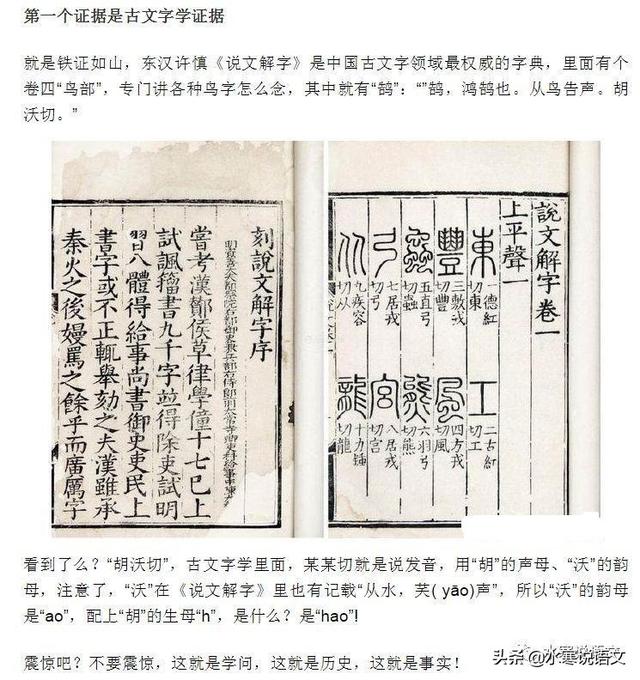 第一个证据是古文字学证据
就是铁证如山，东汉许慎《说文解字》是中国古文字领域最权威的字典，里面有个
卷四“鸟部”，专门讲各种鸟字怎么念，其中就有“鹄”：“”鹄，鸿鹄也。从鸟告声。胡
沃切。”
說文解字卷一
上平聲一
東 一德紅切東 工 二古紅切工
豐 三敷戎切豐 風 四方戎切風
蟲 五直弓切蟲 熊 六羽弓切熊
弓 七居戎切弓 宮 八居戎切宮
从 九疾容切从 龍 十力鍾切龍
刻說文解字序
嘗考漢酇侯草律學僮十七已上
試諷籀書九千字並得除吏試明
習八體得給事尚書御史史民上
書字或不正輒舉劾之夫漢雖承
秦火之後嫚罵之餘乎而廣厲字
看到了么？“胡沃切”，古文字学里面，某某切就是说发音，用“胡”的声母、“沃”的韵
母，注意了，“沃”在《说文解字》里也有记载“从水，芺( yāo)声”，所以“沃”的韵母
是“ao”，配上“胡”的生母“h”，是什么？是“hao”!
震惊吧？不要震惊，这就是学问，这就是历史，这就是事实！
头条 @水寒说语文